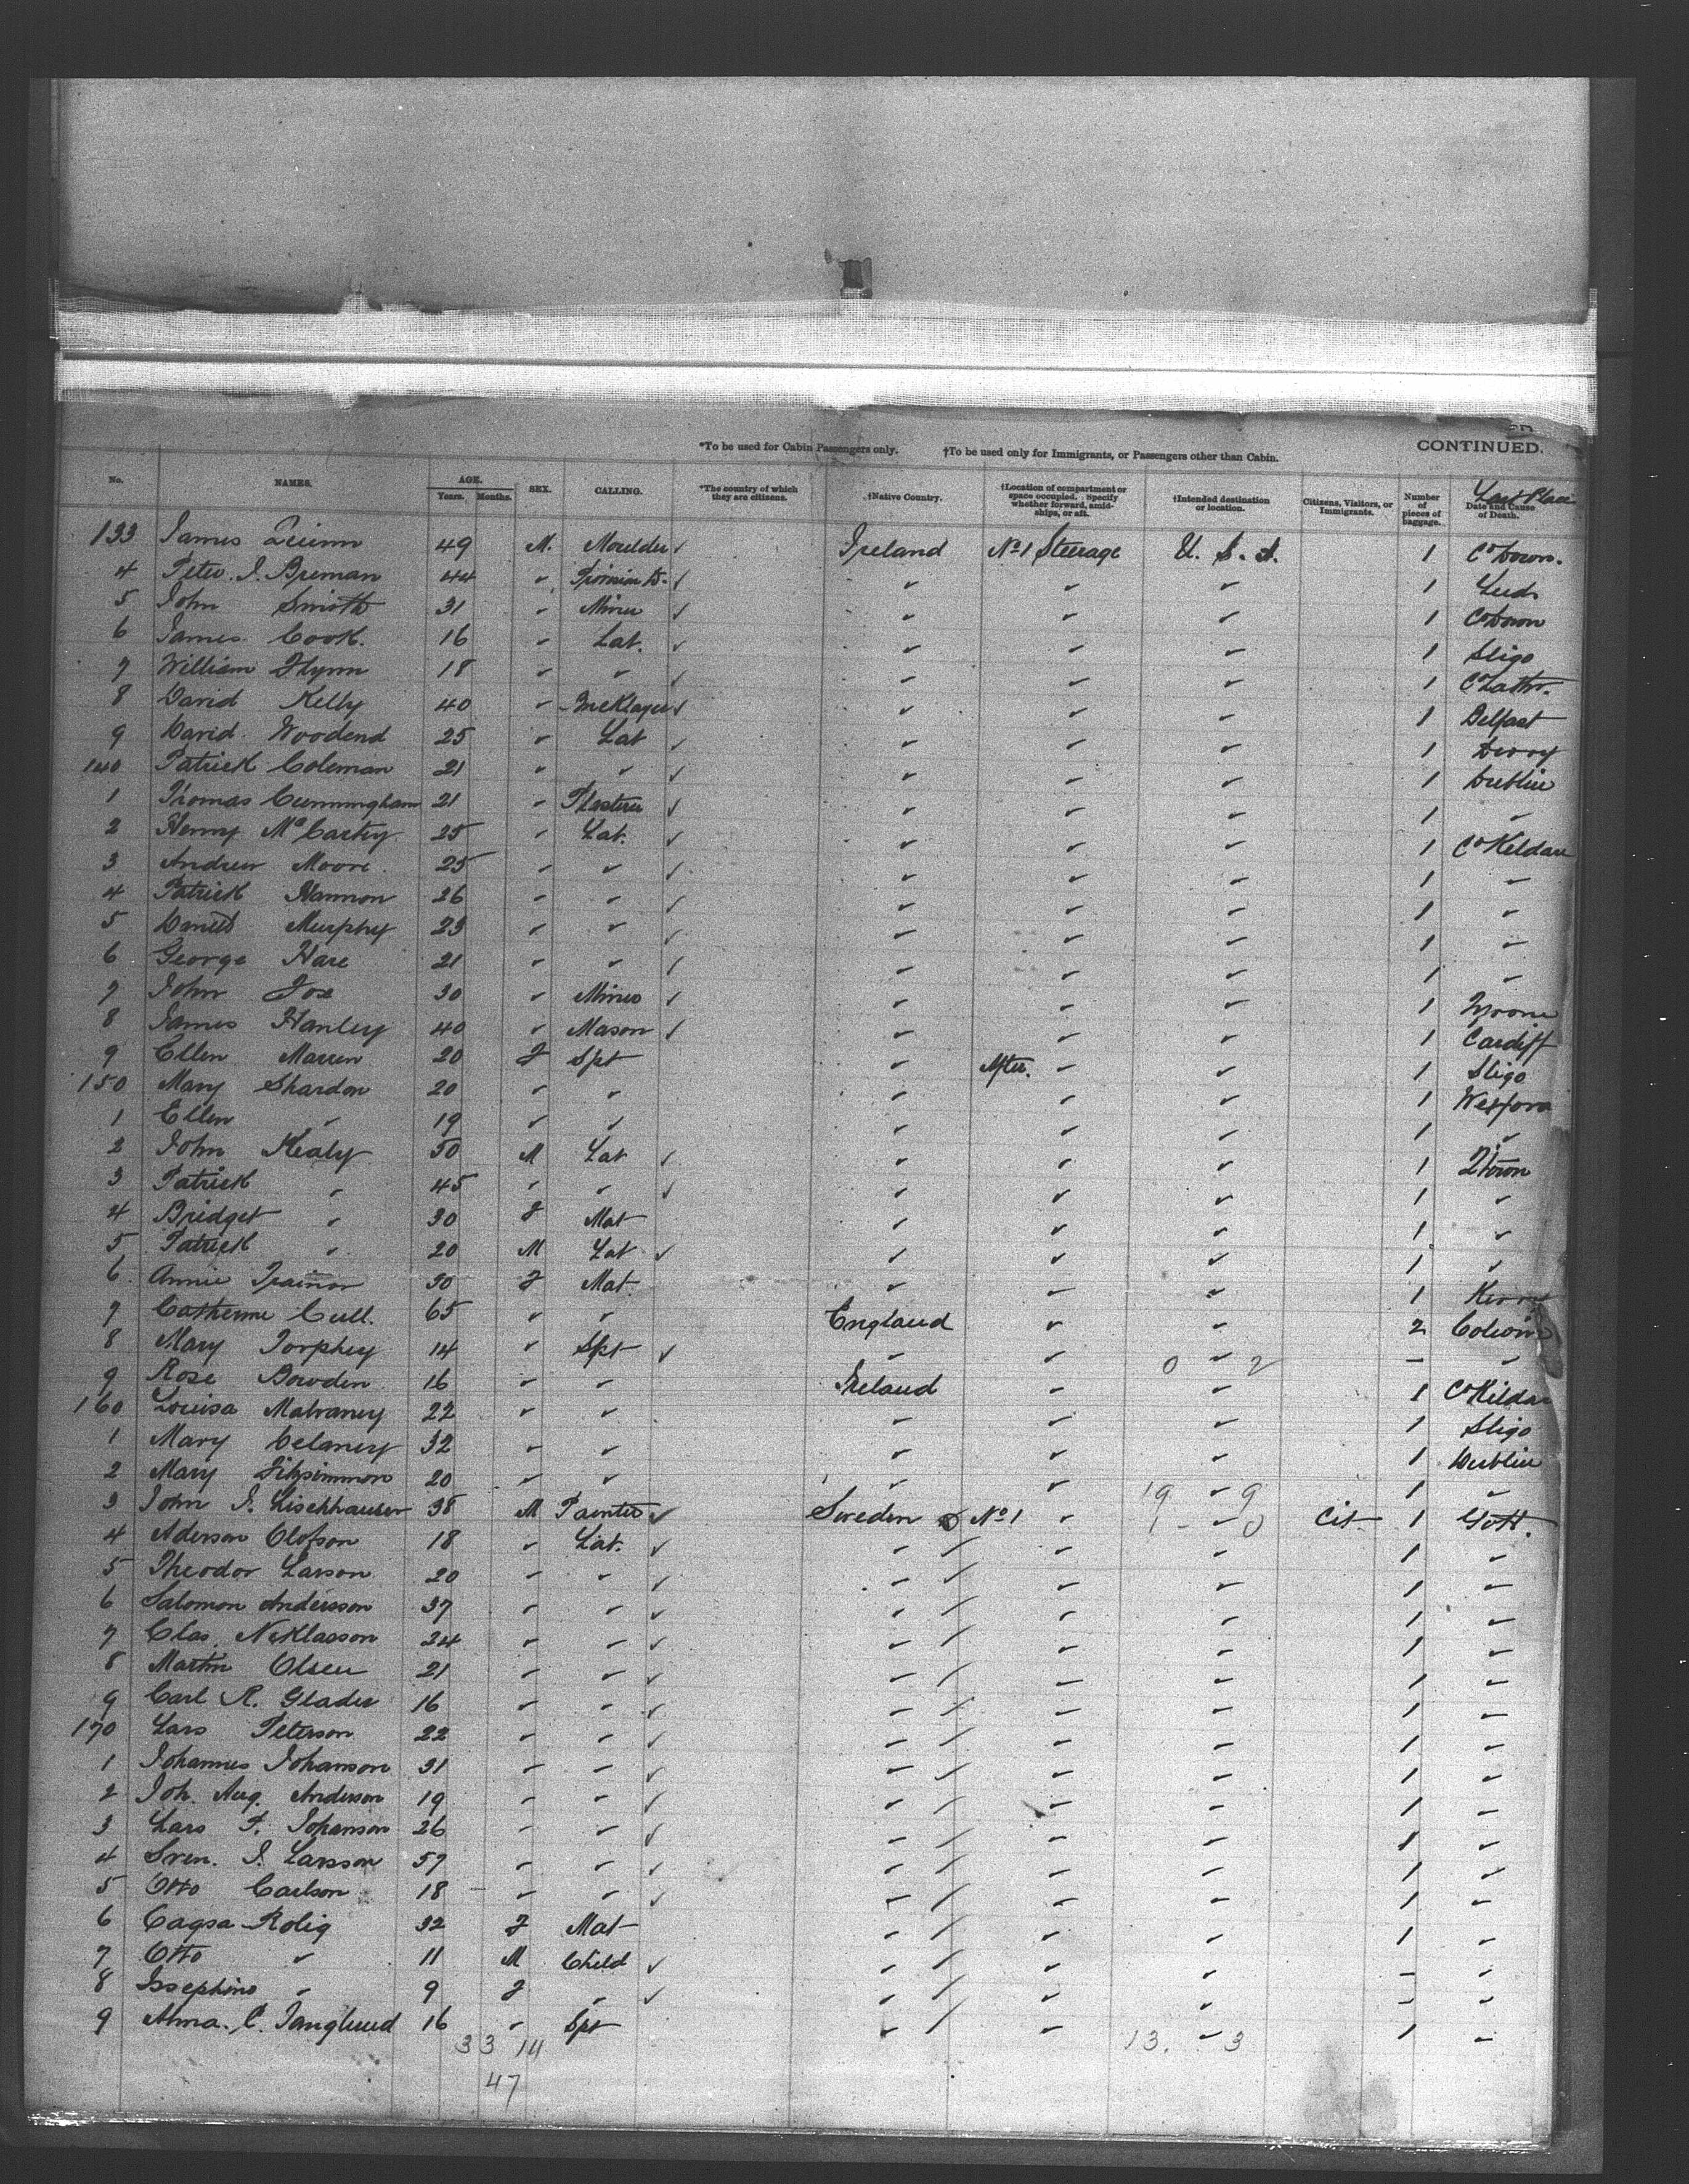 CONTINUED.
*To be used for Cabin Passengers only. †To be used only for Immigrants, or Passengers other than Cabin.
No. NAMES. AGE. Years. Months. SEX. CALLING. *The country of which they are citizens. †Native Country. †Location of compartment or space occupied. Specify whether forward, amidships, or aft. †Intended destination or location. Citizens, Visitors, or Immigrants. Number of pieces of baggage. Last Place Date and Cause of Death.
133 James Quinn 49 M. Moulder ✓ Ireland No 1 Steerage U. S. A. 1 Co Down.
4 Peter J. Brennan 44 " ✓ " " " 1 Leeds
5 John Smith 31 " Miner ✓ " " " 1 Co Down
6 James Cook. 16 " Lab. ✓ " " " 1 Sligo
7 William Flynn 18 " " ✓ " " " 1
8 David Kelly 40 " Bricklayer ✓ " " " 1 Belfast
9 David Woodend 25 " Lab ✓ " " " 1 Derry
140 Patrick Coleman 21 " " ✓ " " " 1 Dublin
1 Thomas Cunningham 21 " Plasterer ✓ " " " 1 "
2 Henry McCartey 25 " Lab. ✓ " " " 1 Co Kildare
3 Andrew Moore 25 " " ✓ " " " 1 "
4 Patrick Hannon 26 " " ✓ " " " 1 "
5 Daniel Murphy 23 " " ✓ " " " 1 "
6 George Hare 21 " " ✓ " " " 1 "
7 John Fox 30 " Miner ✓ " " " 1 Tyrone
8 James Hanley 40 " Mason ✓ " " " 1 Cardiff
9 Ellen Marren 20 F Spt " After. " " 1 Sligo
150 Mary Shardon 20 " " " " " 1 Wexford
1 Ellen " 19 " " " " " 1 "
2 John Healy 50 M Lab ✓ " " " 1 Qtown
3 Patrick " 45 " " ✓ " " " 1 "
4 Bridget " 30 F Mat " " " 1 "
5 Patrick " 20 M Lab ✓ " " " 1 "
6 Annie Trainor 30 F Mat " " " 1 Kerry
7 Catherine Cull. 65 " " England " " 2
8 Mary Torphey 14 " Spt ✓ " " 0 " 2 – "
9 Rose Bowden 16 " " Ireland " " 1 Co Kildare
160 Louisa Malvaney 22 " " " " " 1 Sligo
1 Mary Delaney 32 " " " " " 1 Dublin
2 Mary Fitzsimmon 20 " " " " 19 " 9 1 "
3 John J. Lischhauser 38 M Painter ✓ Sweden No 1 " 1 - " 0 Cit 1 Gott.
4 Aderson Olofson 18 " Lab. ✓ " / " " 1 "
5 Theodor Larson 20 " " ✓ " / " " 1 "
6 Salomon Andersson 37 " " ✓ " / " " 1 "
7 Clas. Nicklasson 24 " " ✓ " / " " 1 "
8 Martin Olsen 21 " " ✓ " / " " 1 "
9 Carl R. Glader 16 " " ✓ " / " " 1 "
170 Lars Peterson 22 " " ✓ " / " " 1 "
1 Johannes Johanson 31 " " ✓ " / " " 1 "
2 Joh. Aug. Anderson 19 " " ✓ " / " " 1 "
3 Lars P. Johanson 26 " " ✓ " / " " 1 "
4 Sven. J. Larsson 57 " " ✓ " / " " 1 "
5 Otto Carlson 18 " " ✓ " / " " 1 "
6 Cagsa Rolig 32 F Mat " / " " 1 "
7 Otto " 11 M Child ✓ " / " " – "
8 Josephine " 9 F " ✓ " / " " – "
9 Alma. C. Tanglund 16 " Spt " / " 13. " 3 1 "
33 14
47